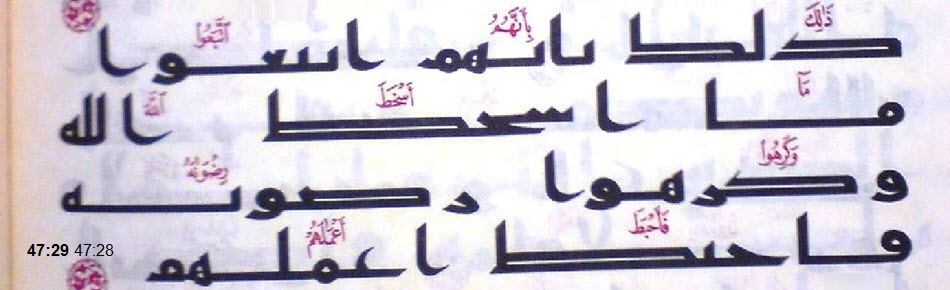 ذَٰلِكَ بِأَنَّهُمُ ٱتَّبَعُوا۟
ذلك بانهم اتبعوا
مَآ أَسْخَطَ ٱللَّهَ
ما اسخط الله
وَكَرِهُوا۟ رِضْوَٰنَهُۥ
وكرهوا رضونه
فَأَحْبَطَ أَعْمَٰلَهُمْ
فاحبط اعملهم
47:29 47:28